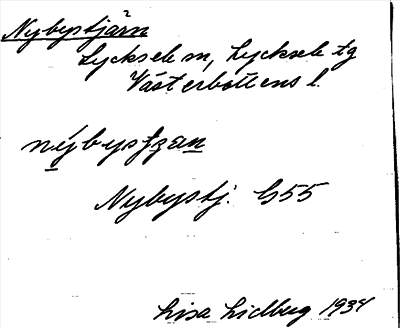 Nybystjärn
Lycksele m, Lycksele tg
Västerbottens l.
nýbystjzan
Nybystj. G55
Lisa Lidberg 1934